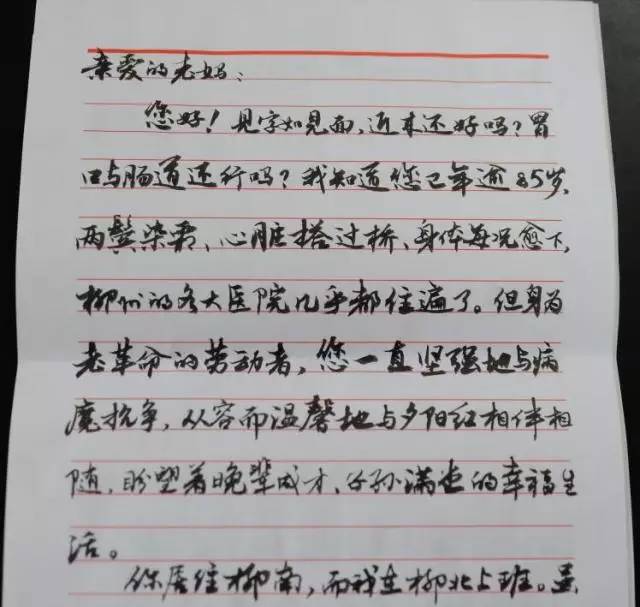 亲爱的老妈：
您好！见字如见面，近来还好吗？胃
口与肠道还行吗？我知道您已年逾85岁，
两鬓染霜、心脏搭过桥、身体每况愈下，
柳州的各大医院几乎都住遍了。但身为
老革命的劳动者，您一直坚强地与病
魔抗争，从容而温馨地与夕阳红相伴相
随，盼望着晚辈成才，仔孙满堂的幸福生
活。
你居住柳南，而我在柳北上班。虽